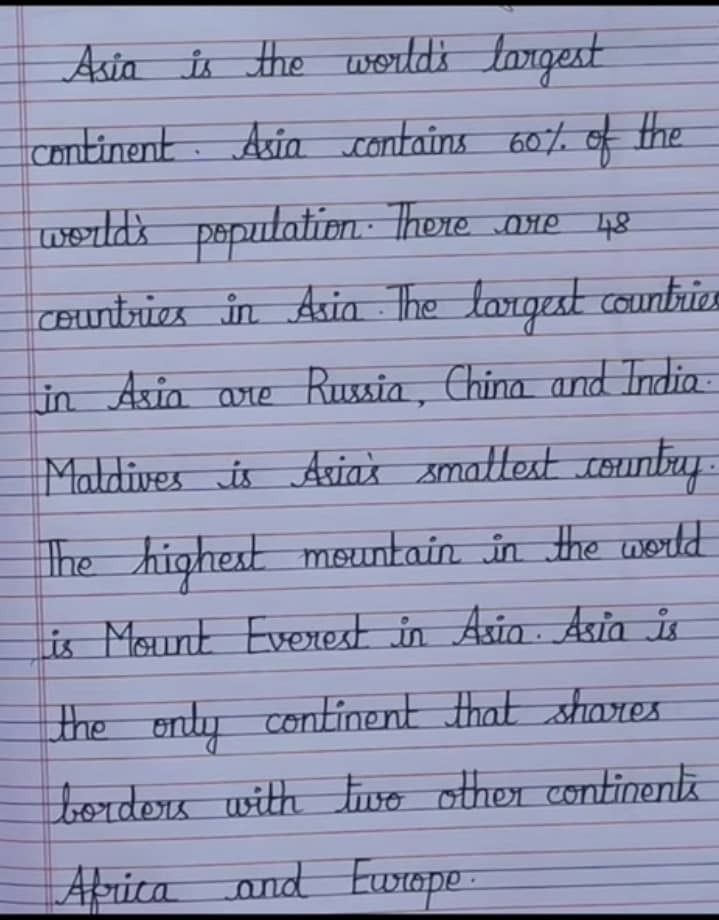 Asia is the world's largest
continent. Asia contains 60% of the
world's population. There are 48
countries in Asia. The largest countries
in Asia are Russia, China and India.
Maldives is Asia's smallest country.
The highest mountain in the world
is Mount Everest in Asia. Asia is
the only continent that shares
borders with two other continents
Africa and Europe.